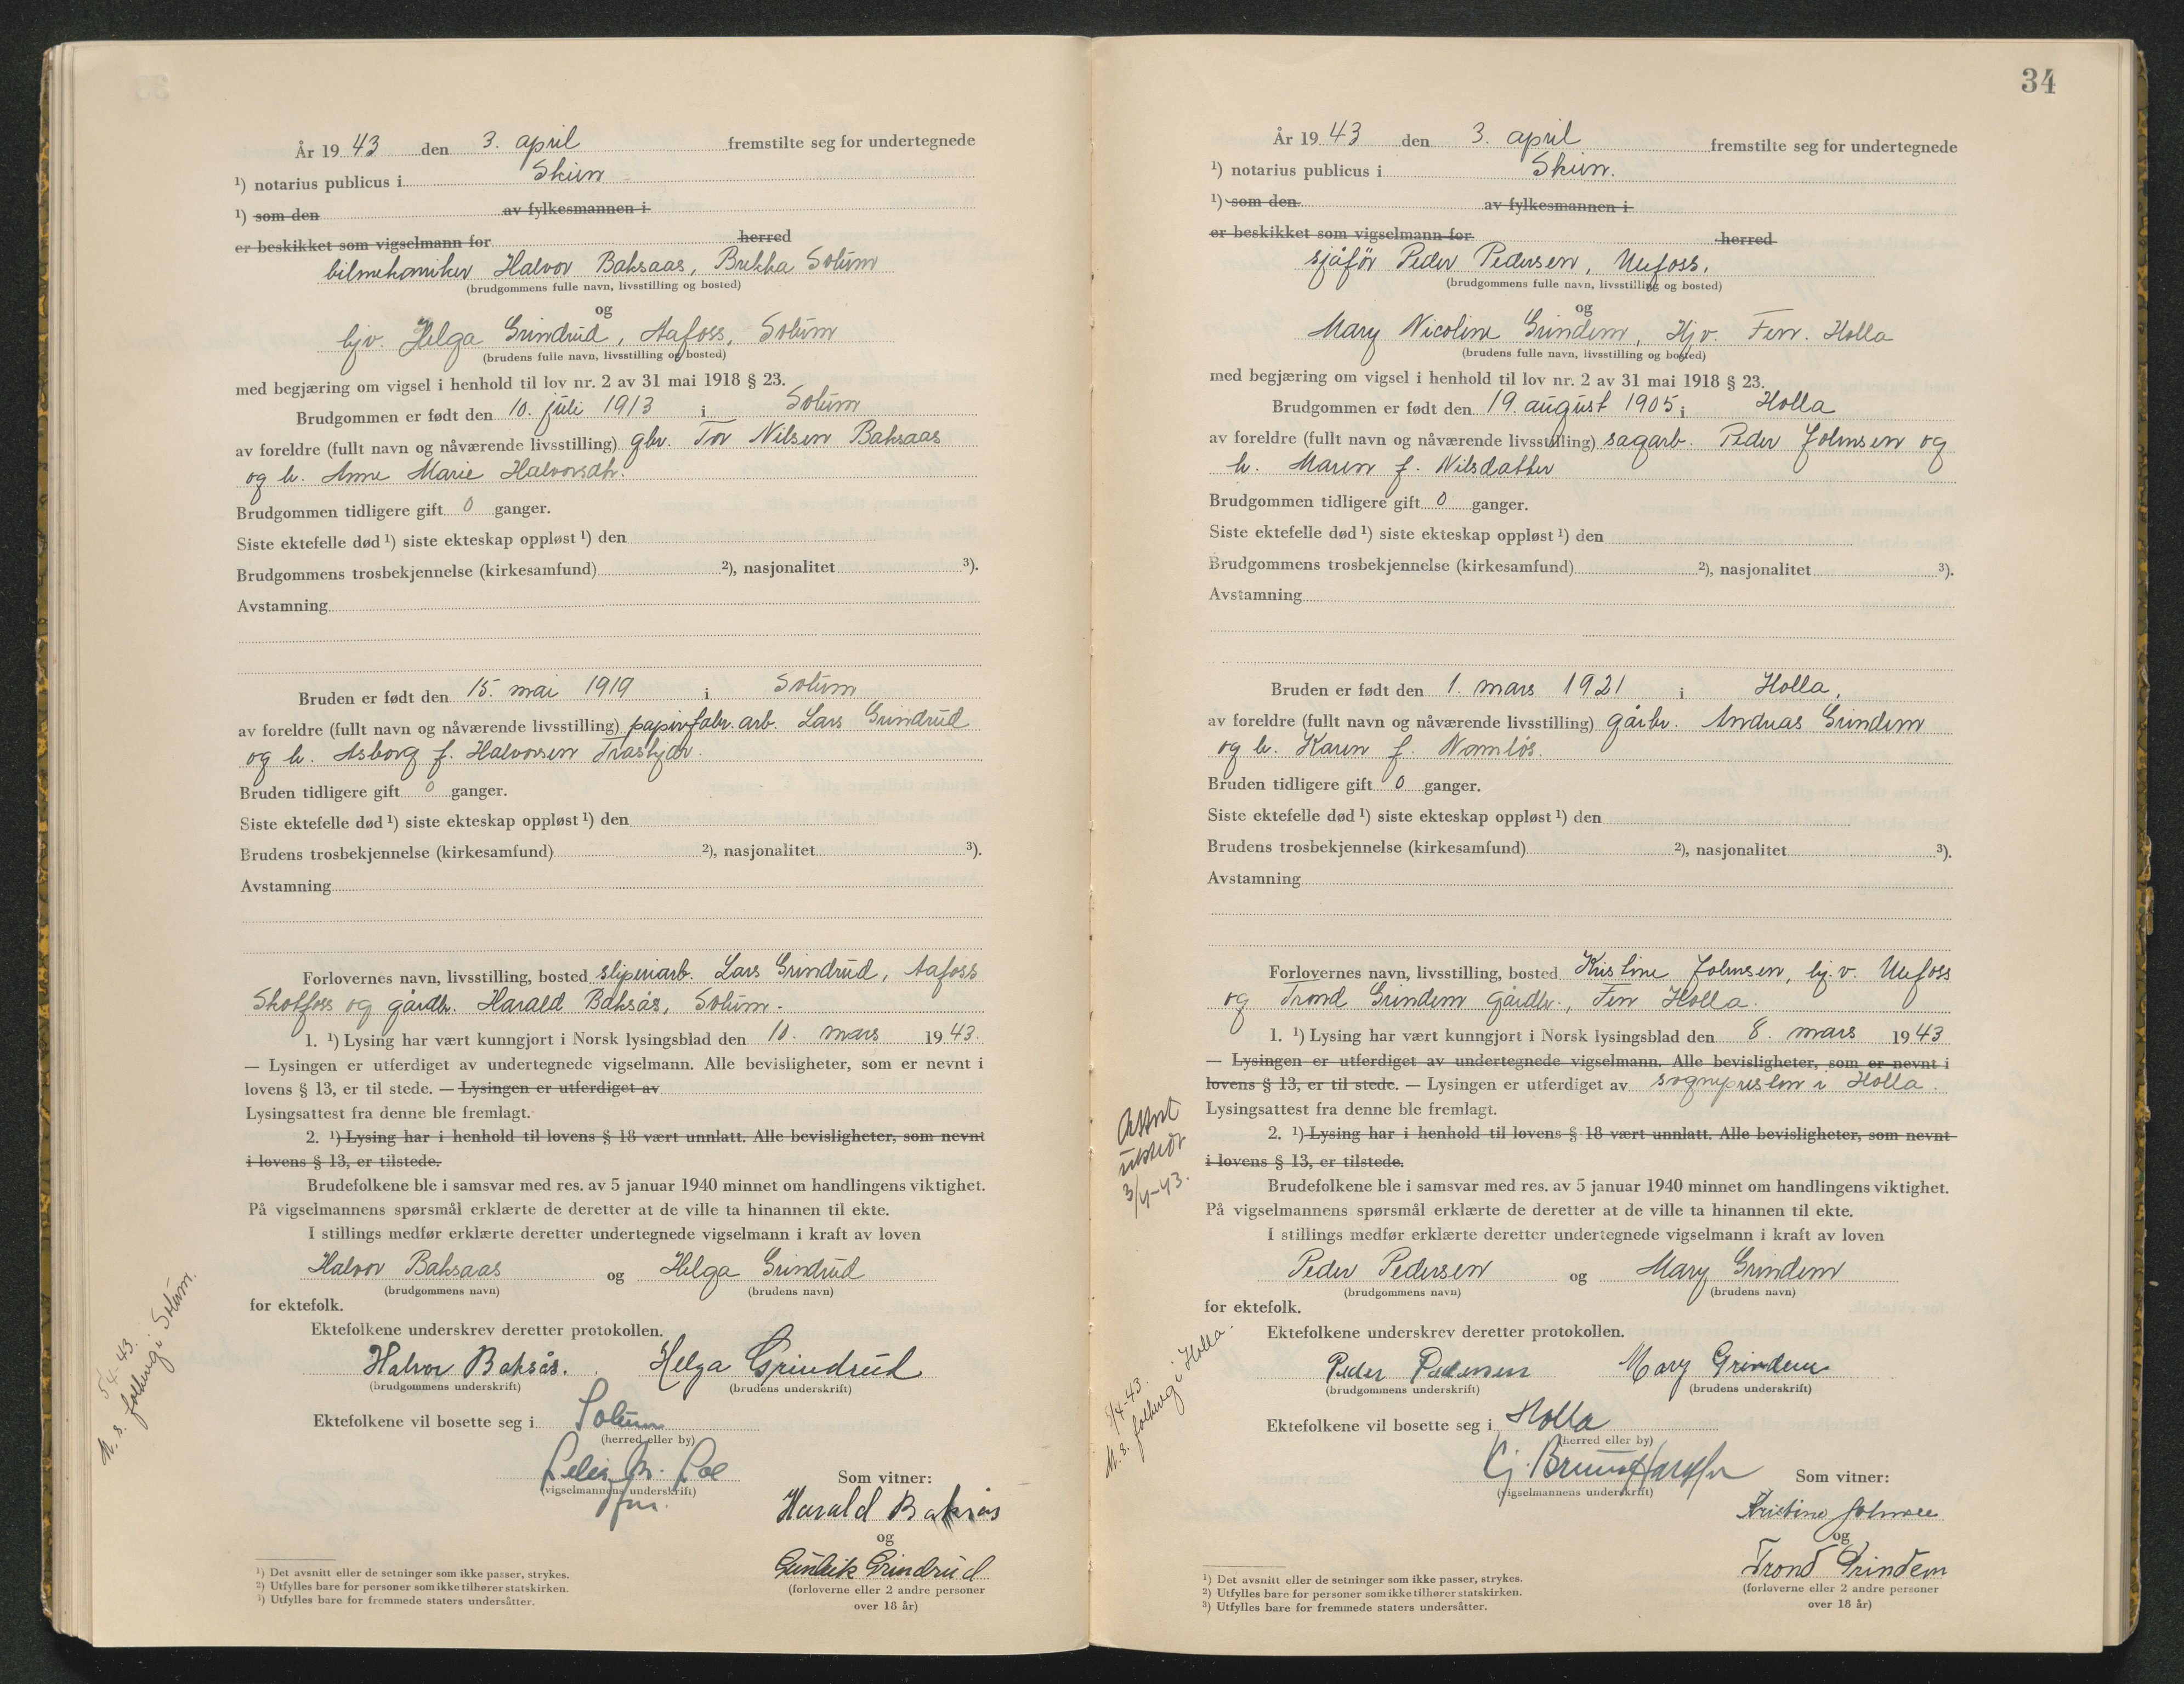 År 1943 den 3. april fremstilte seg for undertegnede
¹) notarius publicus i Skien
¹) som den av fylkesmannen i
er beskikket som vigselmann for herred
bilmekaniker Halvor Baksaas, Brekka Solum
(brudgommens fulle navn, livsstilling og bosted)
og
hjv. Helga Grindrud, Aafoss, Solum
(brudens fulle navn, livsstilling og bosted)
med begjæring om vigsel i henhold til lov nr. 2 av 31 mai 1918 § 23.
Brudgommen er født den 10. juli 1913 i Solum
av foreldre (fullt navn og nåværende livsstilling) gbr. Tor Nilsen Baksaas
og h. Anne Marie Halvorsdtr.
Brudgommen tidligere gift 0 ganger.
Siste ektefelle død ¹) siste ekteskap oppløst ¹) den
Brudgommens trosbekjennelse (kirkesamfund) ²), nasjonalitet ³).
Avstamning
Bruden er født den 15. mai 1919 i Solum
av foreldre (fullt navn og nåværende livsstilling) papirfabr. arb. Lars Grindrud
og h. Asborg f. Halvorsen
Bruden tidligere gift 0 ganger.
Siste ektefelle død ¹) siste ekteskap oppløst ¹) den
Brudens trosbekjennelse (kirkesamfund) ²), nasjonalitet ³).
Avstamning
Forlovernes navn, livsstilling, bosted sliperiarb. Lars Grindrud, Aafoss
Skotfoss og gårdbr. Harald Baksås, Solum.
1. ¹) Lysing har vært kunngjort i Norsk lysingsblad den 10. mars 1943.
— Lysingen er utferdiget av undertegnede vigselmann. Alle bevisligheter, som er nevnt i
lovens § 13, er til stede. — Lysingen er utferdiget av
Lysingsattest fra denne ble fremlagt.
2. ¹) Lysing har i henhold til lovens § 18 vært unnlatt. Alle bevisligheter, som nevnt
i lovens § 13, er tilstede.
Brudefolkene ble i samsvar med res. av 5 januar 1940 minnet om handlingens viktighet.
På vigselmannens spørsmål erklærte de deretter at de ville ta hinannen til ekte.
I stillings medfør erklærte deretter undertegnede vigselmann i kraft av loven
Halvor Baksaas og Helga Grindrud
(brudgommens navn) (brudens navn)
for ektefolk.
Ektefolkene underskrev deretter protokollen.
Halvor Baksås. Helga Grindrud
(brudgommens underskrift) (brudens underskrift)
Ektefolkene vil bosette seg i Solum
(herred eller by)
(vigselmannens underskrift)
Som vitner:
Harald Baksås
og
Grindrud
(forloverne eller 2 andre personer
over 18 år)
5/4-43.
M. s. folkereg i Solum.
¹) Det avsnitt eller de setninger som ikke passer, strykes.
²) Utfylles bare for personer som ikke tilhører statskirken.
³) Utfylles bare for fremmede staters undersåtter.
34
År 1943 den 3. april fremstilte seg for undertegnede
¹) notarius publicus i Skien.
¹) som den av fylkesmannen i
er beskikket som vigselmann for herred
sjåfør Peder Pedersen, Ulefoss.
(brudgommens fulle navn, livsstilling og bosted)
og
Mary Nicoline Grindem, Hjv. Fen. Holla
(brudens fulle navn, livsstilling og bosted)
med begjæring om vigsel i henhold til lov nr. 2 av 31 mai 1918 § 23.
Brudgommen er født den 19. august 1905 i Holla
av foreldre (fullt navn og nåværende livsstilling) sagarb. Peder Johnsen og
h. Maren f. Nilsdatter
Brudgommen tidligere gift 0 ganger.
Siste ektefelle død ¹) siste ekteskap oppløst ¹) den
Brudgommens trosbekjennelse (kirkesamfund) ²), nasjonalitet ³).
Avstamning
Bruden er født den 1. mars 1921 i Holla.
av foreldre (fullt navn og nåværende livsstilling) gårbr. Andreas Grindem
og h. Karen f. Nomløs.
Bruden tidligere gift 0 ganger.
Siste ektefelle død ¹) siste ekteskap oppløst ¹) den
Brudens trosbekjennelse (kirkesamfund) ²), nasjonalitet ³).
Avstamning
Forlovernes navn, livsstilling, bosted Kristine Johnsen, hj.v. Ulefoss
og Trond Grindem gårdbr., Fen Holla.
1. ¹) Lysing har vært kunngjort i Norsk lysingsblad den 8. mars 1943
— Lysingen er utferdiget av undertegnede vigselmann. Alle bevisligheter, som er nevnt i
lovens § 13, er til stede. — Lysingen er utferdiget av sognepresten i Holla.
Lysingsattest fra denne ble fremlagt.
2. ¹) Lysing har i henhold til lovens § 18 vært unnlatt. Alle bevisligheter, som nevnt
i lovens § 13, er tilstede.
Brudefolkene ble i samsvar med res. av 5 januar 1940 minnet om handlingens viktighet.
På vigselmannens spørsmål erklærte de deretter at de ville ta hinannen til ekte.
I stillings medfør erklærte deretter undertegnede vigselmann i kraft av loven
Peder Pedersen og Mary Grindem
(brudgommens navn) (brudens navn)
for ektefolk.
Ektefolkene underskrev deretter protokollen.
Peder Pedersen Mary Grindem
(brudgommens underskrift) (brudens underskrift)
Ektefolkene vil bosette seg i Holla
(herred eller by)
(vigselmannens underskrift)
Som vitner:
Kristine Johnsen
og
Trond Grindem
(forloverne eller 2 andre personer
over 18 år)
Attest
utstedt
3/4-43.
5/4-43.
M. s. folkereg i Holla.
¹) Det avsnitt eller de setninger som ikke passer, strykes.
²) Utfylles bare for personer som ikke tilhører statskirken.
³) Utfylles bare for fremmede staters undersåtter.